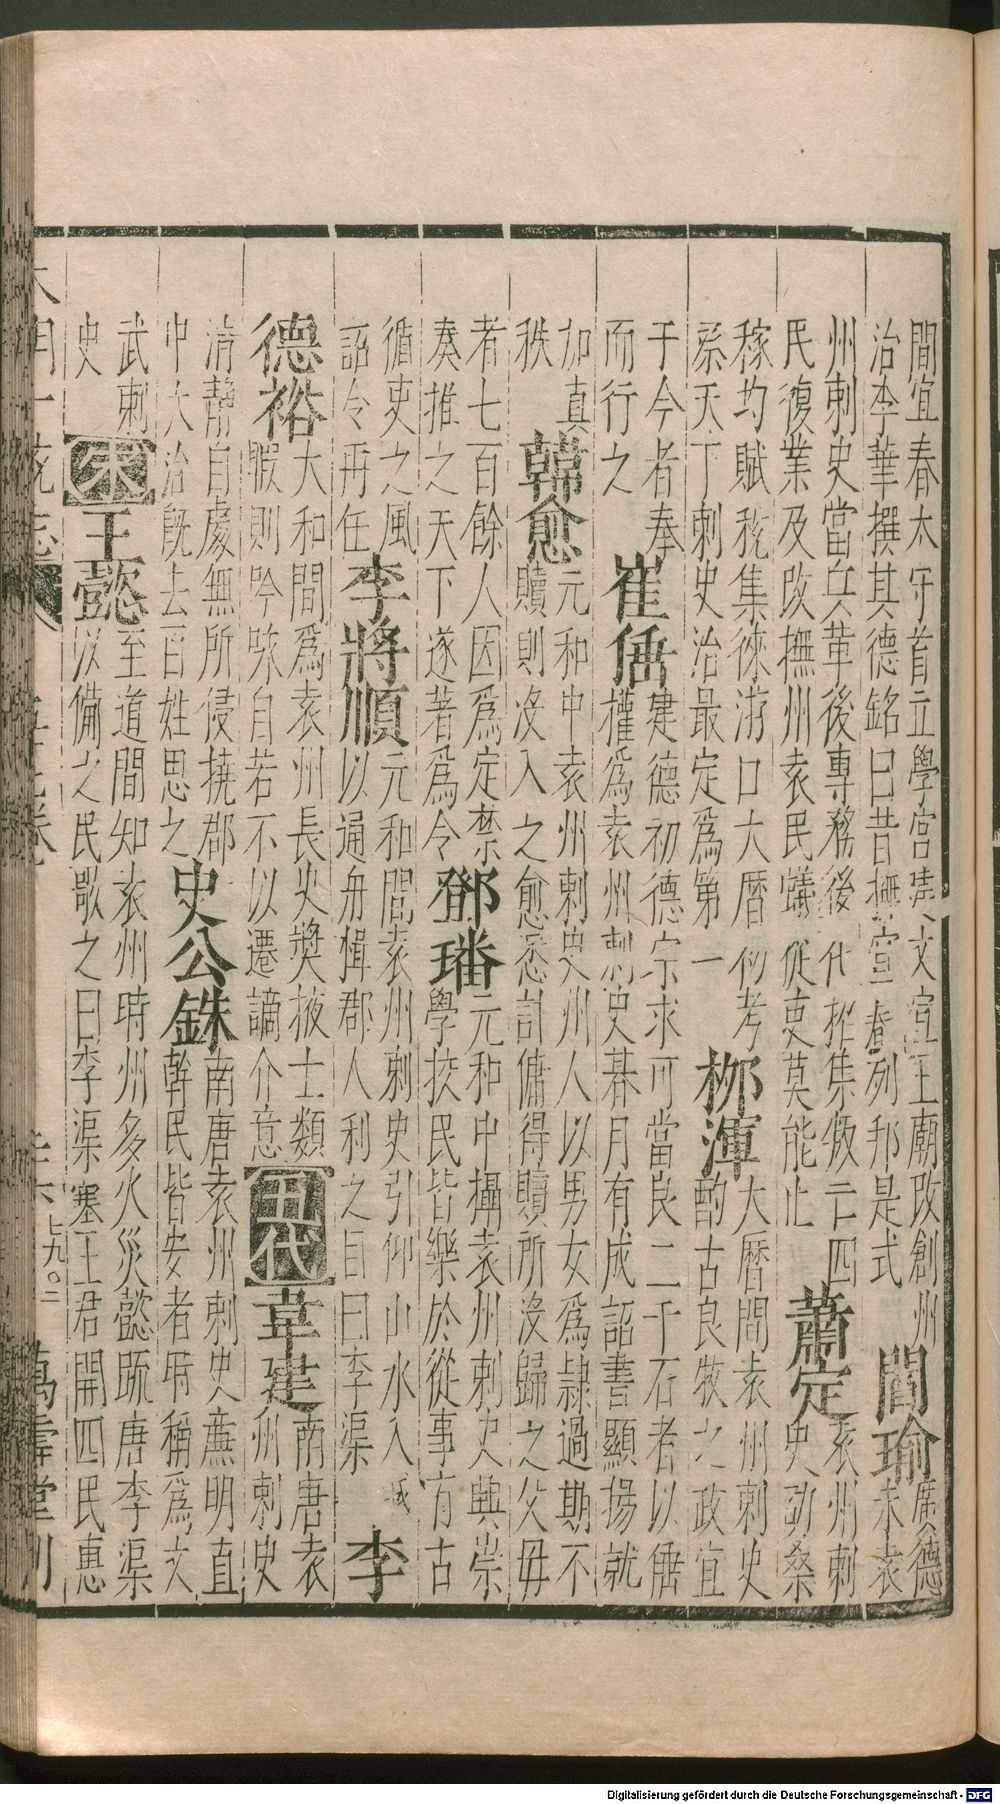 間宜春太守首立學宮建文宣王廟改創州
治李華撰其德銘曰昔 宜春列邦是式
閻瑜
廣德
末袁
州刺史當兵革後專務 集 亡四
民復業及改撫州袁民 從吏莫能止
蕭定
袁州刺
史勸桑
稼均賦稅集徠游口大曆 考
系天下刺史治最定為第一
柳渾
大曆間袁州刺史
酌古良牧之政宜
于今者奉
而行之
崔侑
建德初德宗求可當良二千石者以侑
權為袁州刺史朞月有成詔書顯揚就
加真
秩
韓愈
元和中袁州刺史州人以男女為隷過期不
贖則沒入之愈悉計傭得贖所沒歸之父母
者七百餘人因為定禁
奏推之天下遂著為令
鄧璠
元和中攝袁州刺史興崇
學校民皆樂於從事有古
循吏之風
詔令再任
李將順
元和間袁州刺史引仰山水入城
以通舟楫郡人利之目曰李渠
李
德裕
大和間爲袁州長史奬掖士類
暇則吟咏自若不以遷謫介意
五代
韋建
南唐袁
州刺史
清靜自處無所侵撓郡
中大治旣去百姓思之
史公銖
南唐袁州刺史廉明直
幹民皆安者時稱爲文
武刺
史
宋
王懿
至道間知袁州時州多火災懿疏唐李渠
以備之民歌之曰李渠塞王君開四民惠
大明一統志
萬壽堂刊
Digitalisierung gefördert durch die Deutsche Forschungsgemeinschaft - DFG